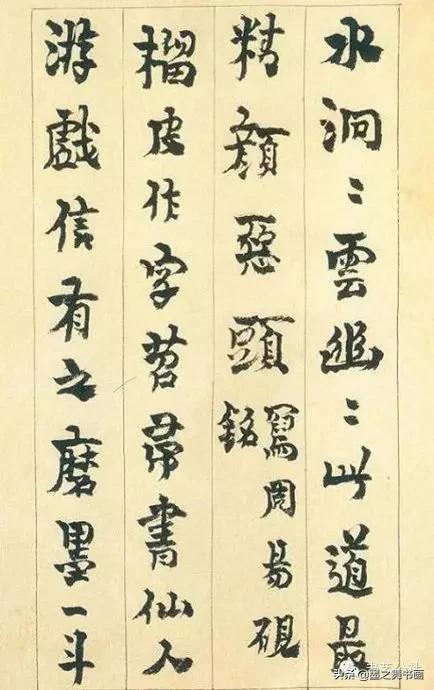 水泂〻雲幽〻此道最
精顏惡頭寫周易硯
銘
榴皮作字苕帚書仙人
游戲信有之磨墨一斗
头条 @墨之舞书画